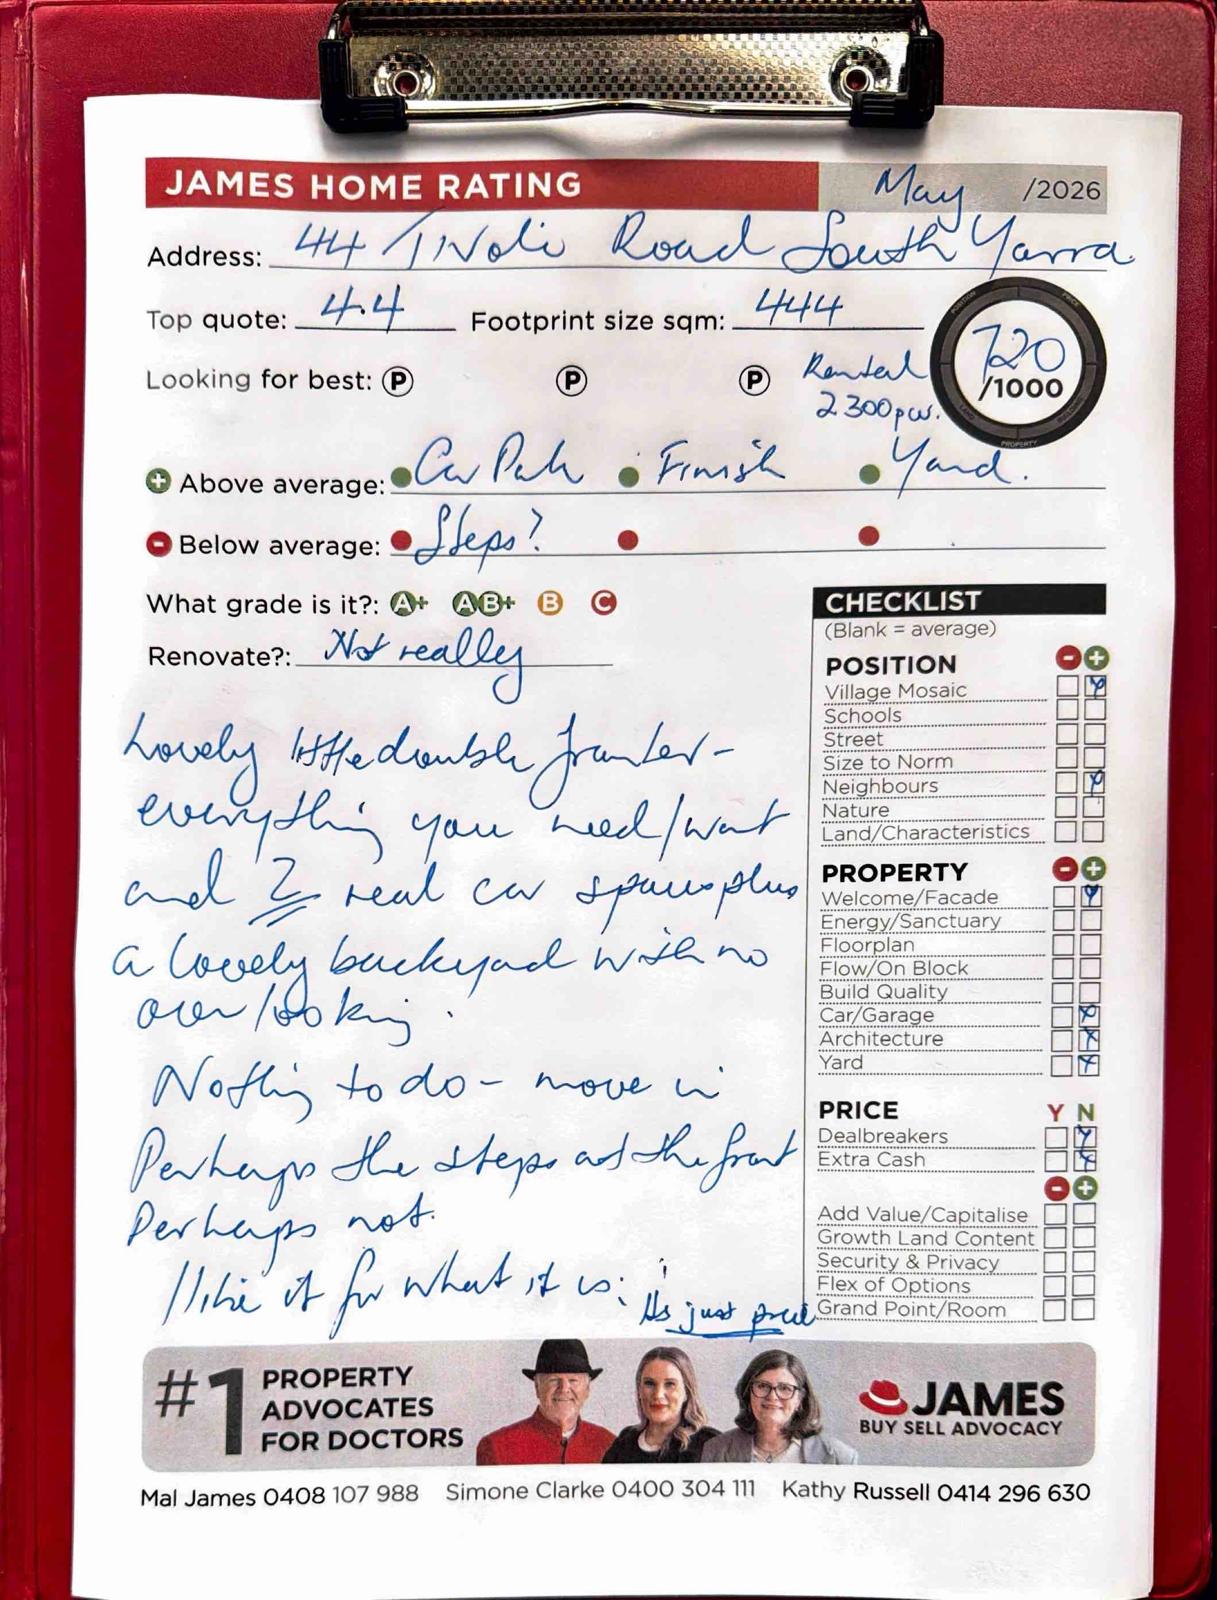 JAMES HOME RATING May /2026
Address: 44 Tivoli Road South Yarra
Top quote: 4.4 Footprint size sqm: 444
720
/1000
Looking for best: P P P Rental
2300pw.
+ Above average: Car Park Finish Yard.
- Below average: Steps?
What grade is it?: A+ AB+ B C
Renovate?: Not really
CHECKLIST
(Blank = average)
POSITION - +
Village Mosaic
Schools
Street
Size to Norm
Neighbours
Nature
Land/Characteristics
PROPERTY - +
Welcome/Facade
Energy/Sanctuary
Floorplan
Flow/On Block
Build Quality
Car/Garage
Architecture
Yard
PRICE Y N
Dealbreakers
Extra Cash
- +
Add Value/Capitalise
Growth Land Content
Security & Privacy
Flex of Options
Grand Point/Room
Lovely little double fronter -
everything you need/want
and 2 real car spaces plus
a lovely backyard with no
overlooking.
Nothing to do - move in
Perhaps the steps at the front
Perhaps not.
I like it for what it is:
its just price
#1 PROPERTY
ADVOCATES
FOR DOCTORS
JAMES
BUY SELL ADVOCACY
Mal James 0408 107 988 Simone Clarke 0400 304 111 Kathy Russell 0414 296 630